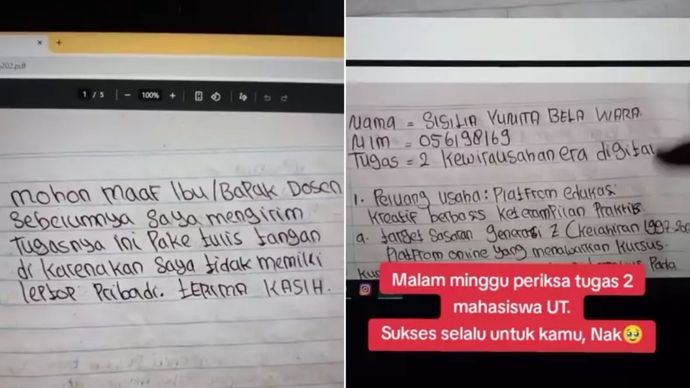 202.pdf
1 / 5
100%
mohon maaf Ibu/Bapak Dosen
Sebelumnya Saya mengirim
Tugasnya ini Pake tulis tangan
di karenakan Saya tidak memiliki
leptop Pribadi. TERIMA KASIH.
Nama = SISILIA YUNITA BELA WARA
NIM = 056198169
Tugas = 2 Kewirausahan era digital
1. Peluang usaha: Platfrom edukasi
Kreatif berbasis keterampilan Praktis
a. target Sasaran generasi Z (Kelahiran 1997
Platfrom online yang menawarkan Kursus
Pada
Malam minggu periksa tugas 2
mahasiswa UT.
Sukses selalu untuk kamu, Nak🥹